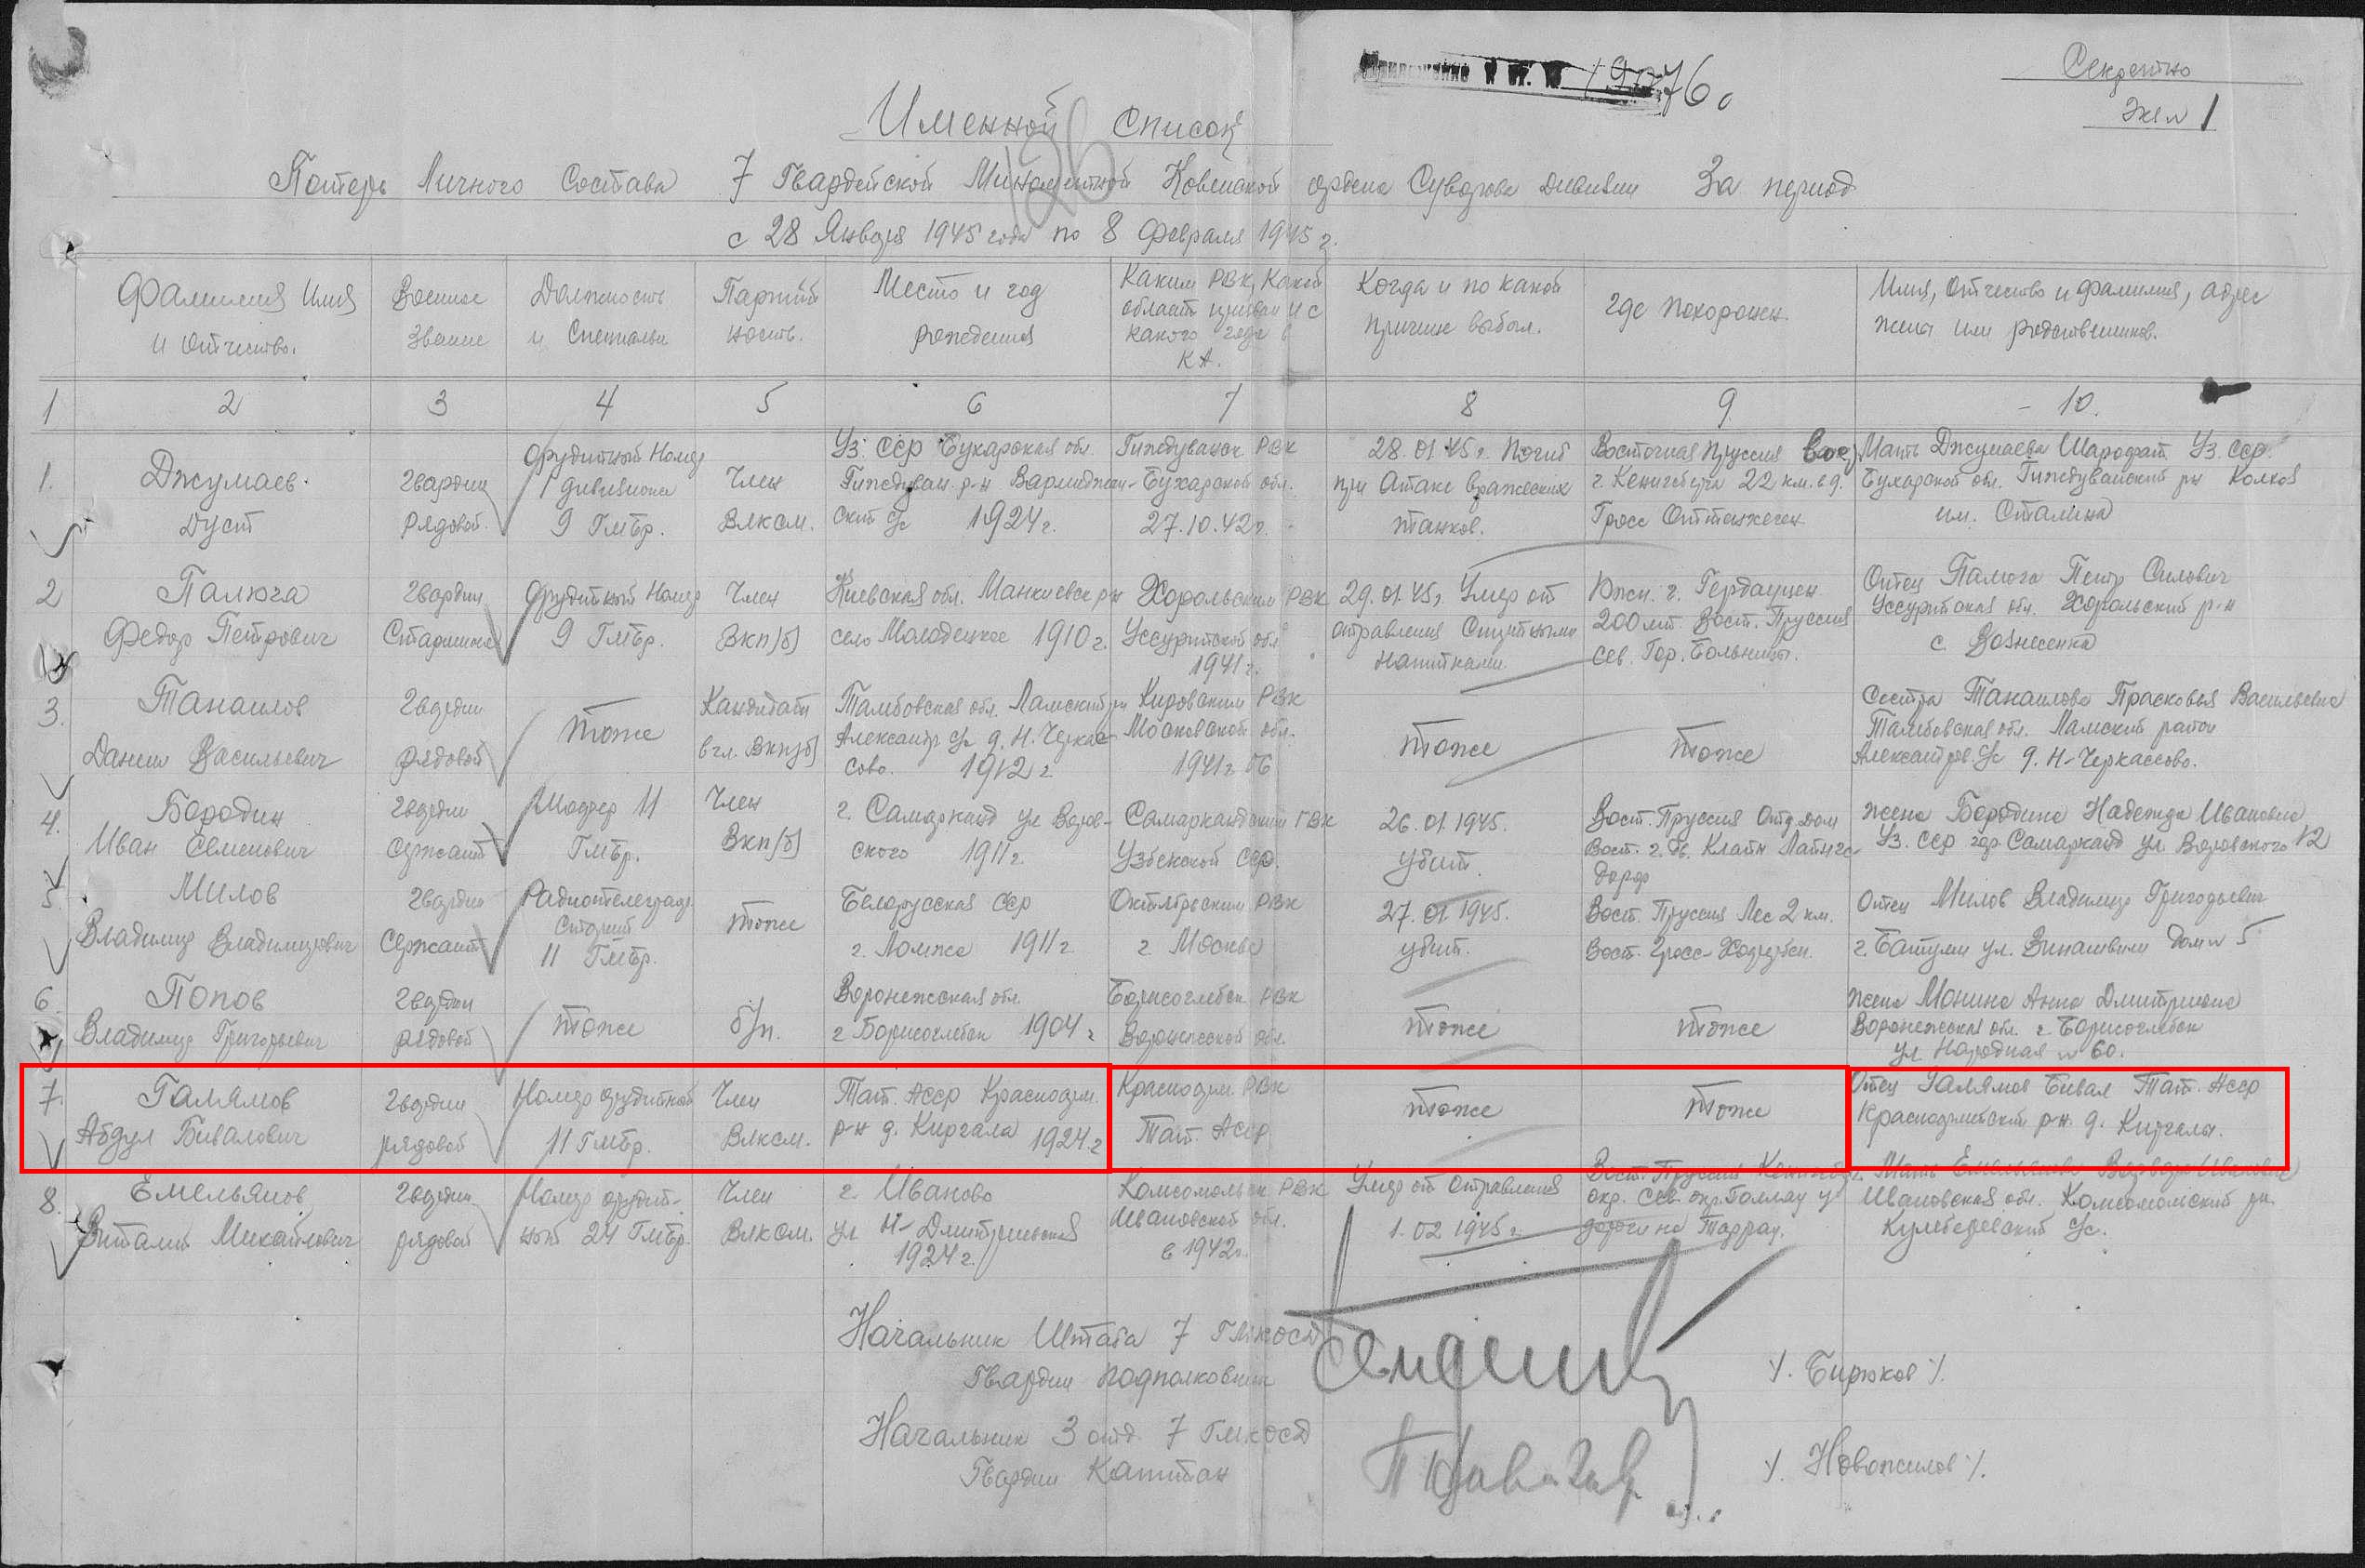 Секретно
Экз № 1
19076с
Именной список
126
Потерь Личного Состава 7 Гвардейской Минометной Ковенской ордена Суворова дивизии За период
с 28 Января 1945 года по 8 февраля 1945 г.
Фамилия Имя и отчество.
Военное звание
Должность и Специальн
Партийность.
Место и год рождения
Каким РВК, Какой области призван и с какого года в КА.
Когда и по какой причине выбыл.
Где похоронен
Имя, отчество и фамилия, адрес жены или родственников.
1 2 3 4 5 6 7 8 9 10.
1. Джумаев Дуст
гвардии рядовой.
Орудийный Номер дивизиона 9 Гмбр.
Член Влксм.
Уз. ССР Бухарская обл. Гиждуван. р-н с/с 1924 г.
Гиждуванск РВК Бухарской обл. 27.10.42 г.
28.01.45 г. Погиб при Атаке вражеских танков.
Восточная Пруссия г. Кенигсберга 22 км. в д. Гросс Оттенхаген
Мать Джумаева Шарофат Уз. ССР. Бухарской обл. Гиждуванский рн Колхоз им. Сталина
2 Палюга Федор Петрович
гвардии Старшина
Орудийный Номер 9 Гмбр.
Член Вкп/б/
Киевская обл. Манкиевск рн село Молодецкое 1910 г.
Хорольским РВК Уссурийской обл 1941 г.
29.01.45 г. Умер от отравления Спиртными напитками
Южн. г. Гердауен 200 мт. Вост. Пруссия Сев. Гор. Больницы.
Отец Палюга Петр Силович Уссурийская обл. Хорольский р-н с. Вознесенка
3. Танаилов Данил Васильевич
гвардии рядовой
тоже
Кандидат в чл. Вкп/б/
Тамбовская обл. Ламский рн Александр с/с д. Н. Черкассово. 1912 г.
Кировским РВК Московской обл. 1941 г.
тоже
тоже
Сестра Танаилова Прасковья Васильевна Тамбовская обл. Ламский район Александров. с/с д. Н-Черкассово.
4. Бородин Иван Семенович
гвардии сержант
Шофер 11 Гмбр.
Член Вкп/б/
г. Самарканд ул Воровского 1911 г.
Самаркандским ГВК Узбекской ССР.
26.01.1945. убит.
Вост. Пруссия Отд. Дом Вост. г. Кляйн
жена Бородина Надежда Ивановна Уз. ССР гор. Самарканд ул Воровского 12
5. Милов Владимир Владимирович
гвардии Сержант
Радиотелеграф. Старший 11 Гмбр.
тоже
Белорусская ССР г. Ломжа 1911 г.
Октябрьским РВК г. Москвы
27.01.1945. убит.
Вост. Пруссия Лес 2 км. Вост. Гросс-
Отец Милов Владимир Григорьевич г. Батуми ул. дом № 5
6. Попов Владимир Григорьевич
гвардии рядовой
тоже
б/п.
Воронежская обл. г Борисоглебск 1904 г
Борисоглебск РВК Воронежской обл.
тоже
тоже
жена Монина Анна Дмитриевна Воронежская обл. г. Борисоглебск ул Народная № 60.
7. Галямов Абдул Бивалович
гвардии рядовой
Номер орудийной 11 Гмбр.
Член Влксм.
Тат. АССР Красноарм. р-н д. Киргала 1924 г
Красноарм. РВК Тат. АССР
тоже
тоже
Отец Галямов Бивал Тат. АССР Красноармейский рн. д. Киргалы.
8. Емельянов Виталий Михайлович
гвардии рядовой
Номер орудийный 24 Гмбр.
Член Влксм.
г. Иваново ул Н-Дмитриевская 1924 г.
Комсомольск РВК Ивановской обл. в 1942 г.
Умер от отравления 1.02.1945 г.
Вост. Пруссия окр. Сев. окр. Голлау у дороги на
Мать Емельянова Варвара Ивановна Ивановская обл. Комсомольский рн. с/с.
Начальник Штаба 7 Гмкосд
Гвардии подполковник /. Бирюков /.
Начальник 3 отд. 7 Гмкосд
Гвардии Капитан /. Новожилов /.